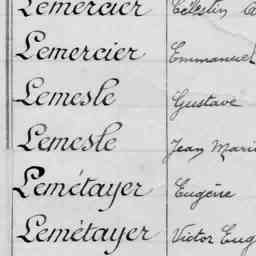 Lemercier Célestin
Lemercier Emmanuel
Lemesle Gustave
Lemesle Jean Marie
Lemétayer Eugène
Lemétayer Victor Eug